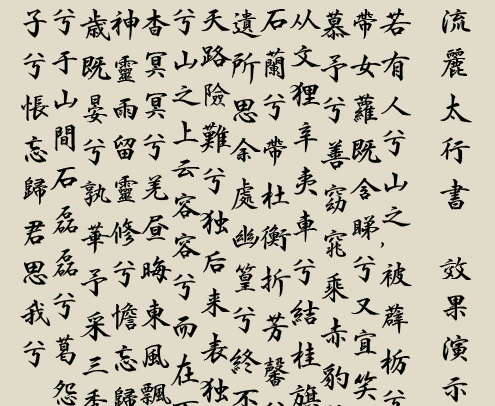 流麗太行書 效果演示
若有人兮山之,被薜枥兮
帶女蘿既含睇兮又宜笑
慕予兮善窈窕乘赤豹
从文狸辛夷車兮結桂旗
石蘭兮帶杜衡折芳馨
遺所思余處幽篁兮終不
天路險難兮独后来表独
兮山之上云容容兮而在
杳冥冥兮羌昼晦東風飄
神靈雨留靈修兮憺忘歸
歲既晏兮孰華予采三秀
兮于山間石磊磊兮葛怨
子兮悵忘歸君思我兮